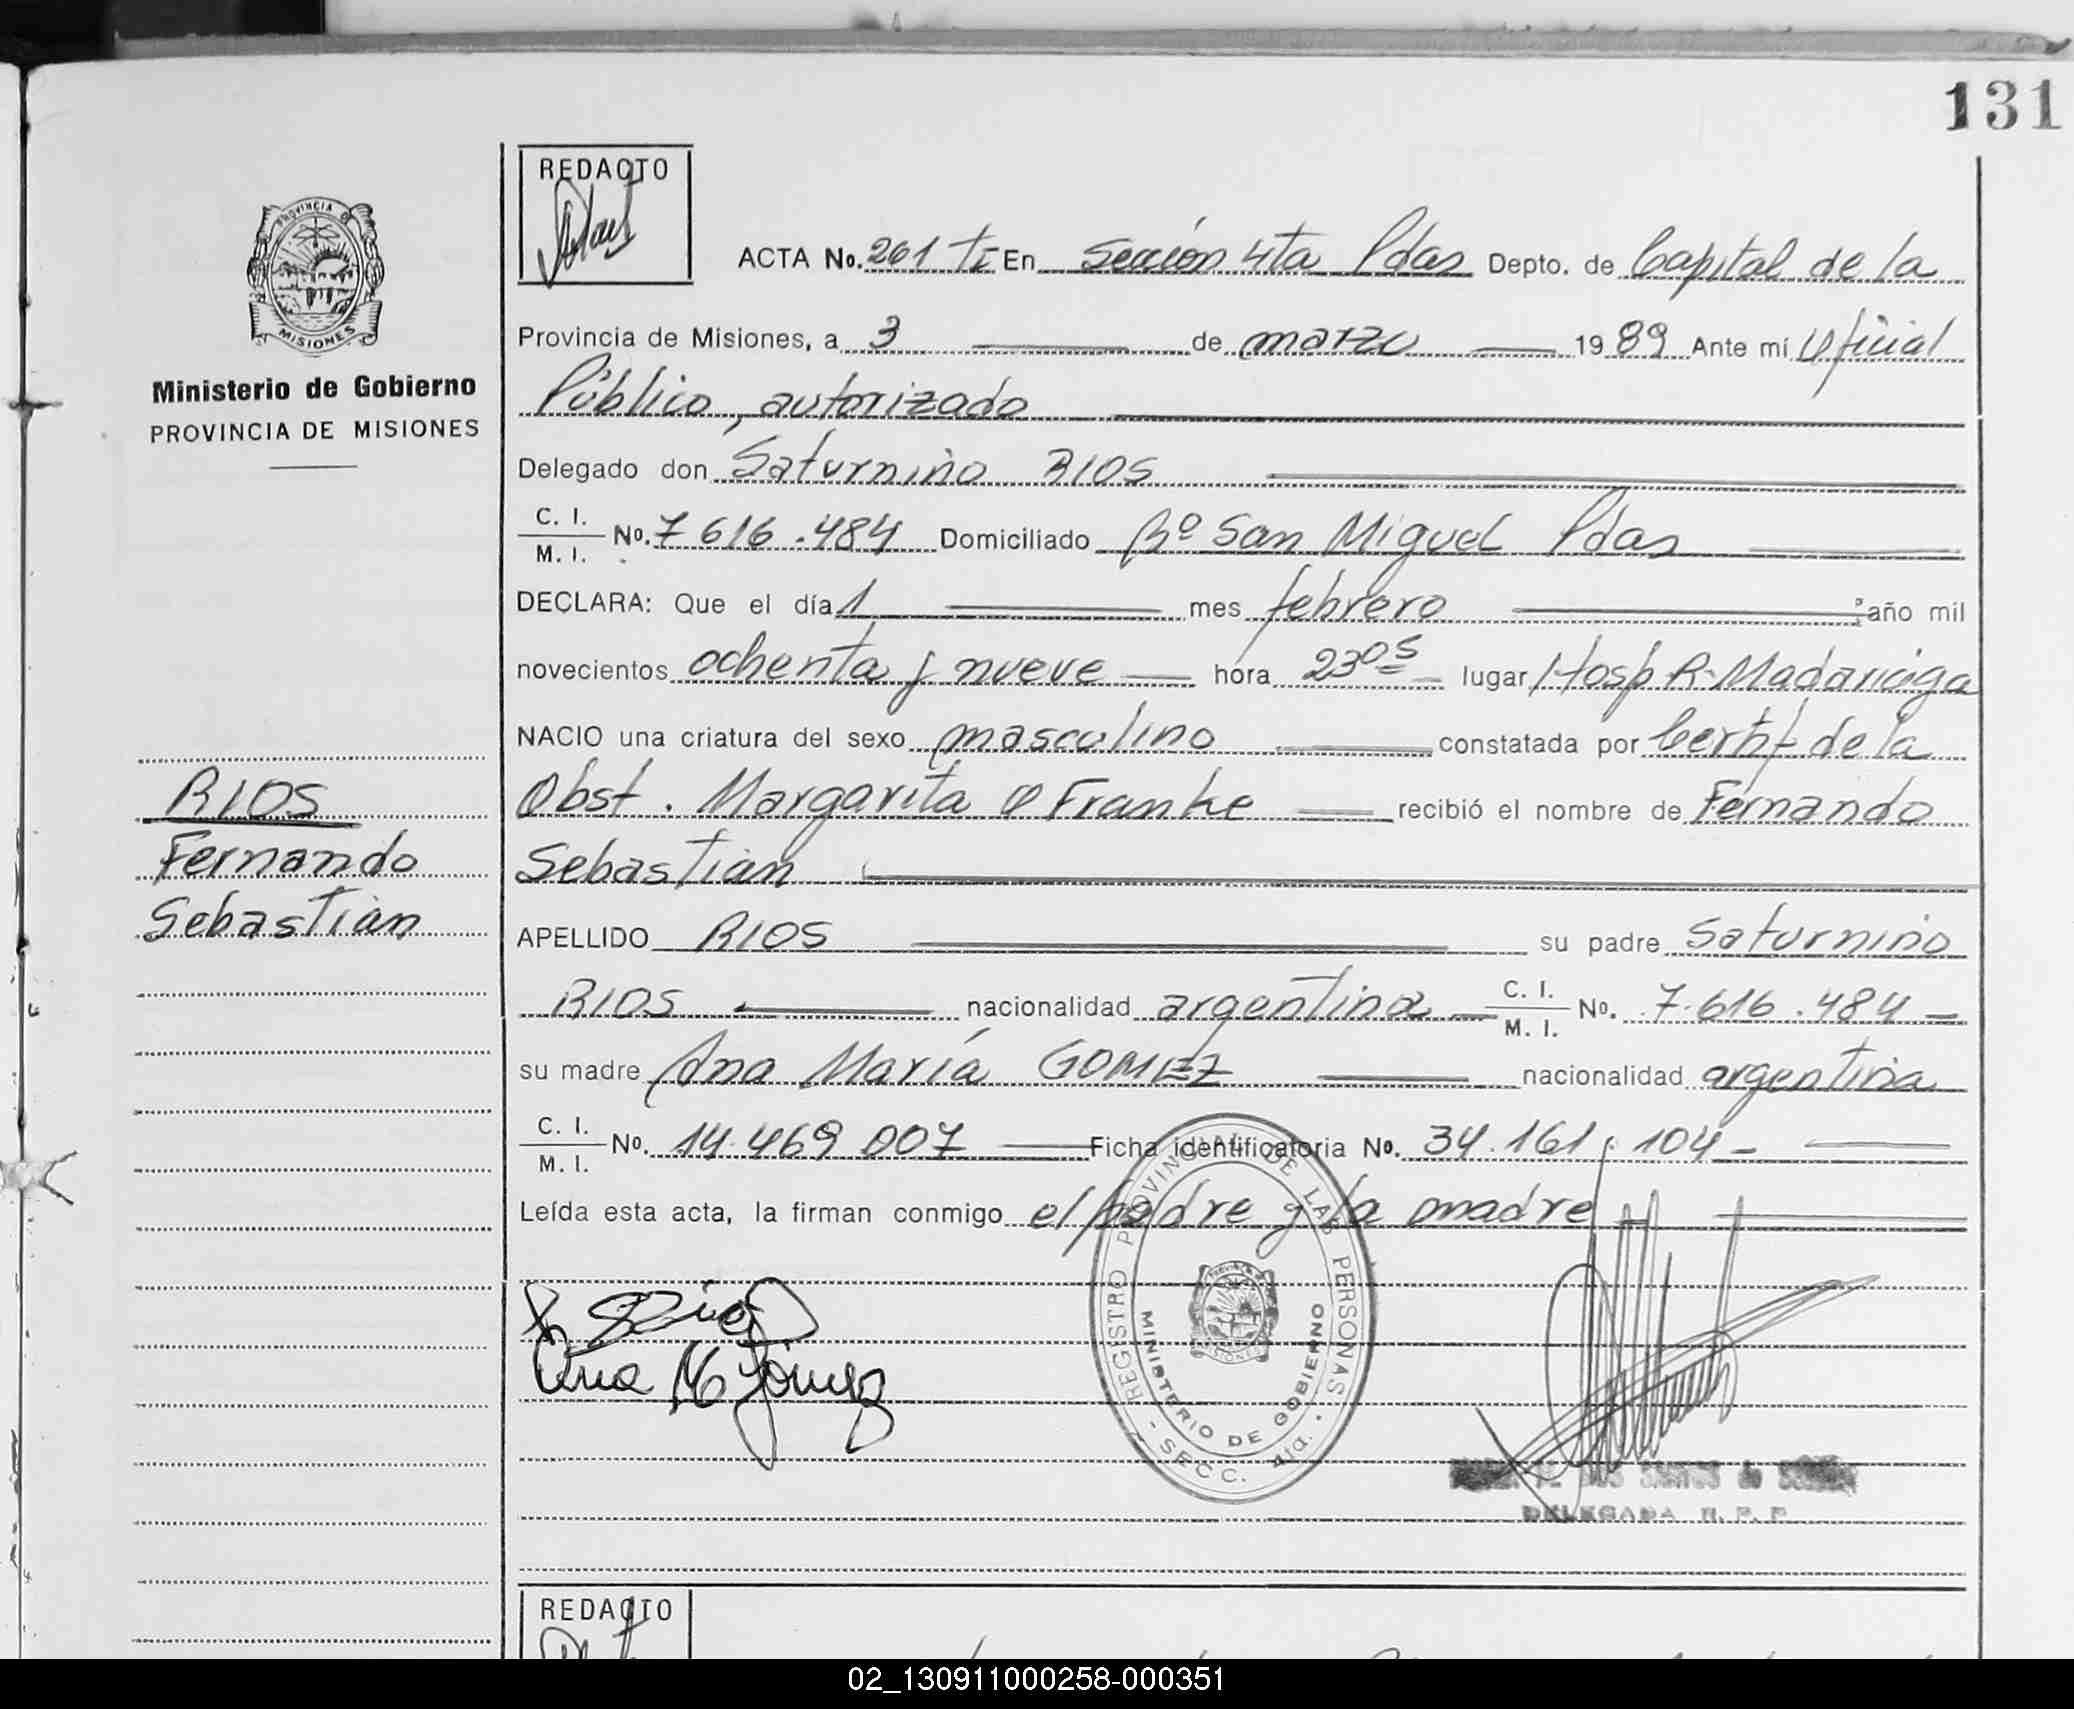 131
PROVINCIA DE
MISIONES
Ministerio de Gobierno
PROVINCIA DE MISIONES
RIOS
Fernando
Sebastián
REDACTO
ACTA No. 261 TI En Sección 4ta Pdas Depto. de Capital de la
Provincia de Misiones, a 3 de marzo 1989 Ante mí Oficial
Público, autorizado
Delegado don Saturnino RIOS
C. I.
M. I. No. 7 616.484 Domiciliado Bº San Miguel Pdas
DECLARA: Que el día 1 mes febrero año mil
novecientos ochenta y nueve hora 2305 lugar Hosp R. Madariaga
NACIO una criatura del sexo masculino constatada por Certif de la
Obst. Margarita Franke recibió el nombre de Fernando
Sebastián
APELLIDO RIOS su padre Saturnino
RIOS nacionalidad argentina C. I.
M. I. No. 7.616.484
su madre Ana María GOMEZ nacionalidad argentina
C. I.
M. I. No. 14.469.007 Ficha identificatoria No. 34.161.104
Leída esta acta, la firman conmigo el padre y la madre
Ana M Gómez
REGISTRO PROVINCIAL DE LAS PERSONAS
MINISTERIO DE GOBIERNO
SECC. 4ta.
DELEGADA R. P. P.
REDACTO
02_130911000258-000351